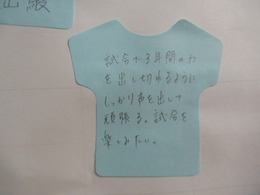 試合で3年間の力
を出し切れるように
しっかり声を出して
頑張る。試合を
楽しみたい。